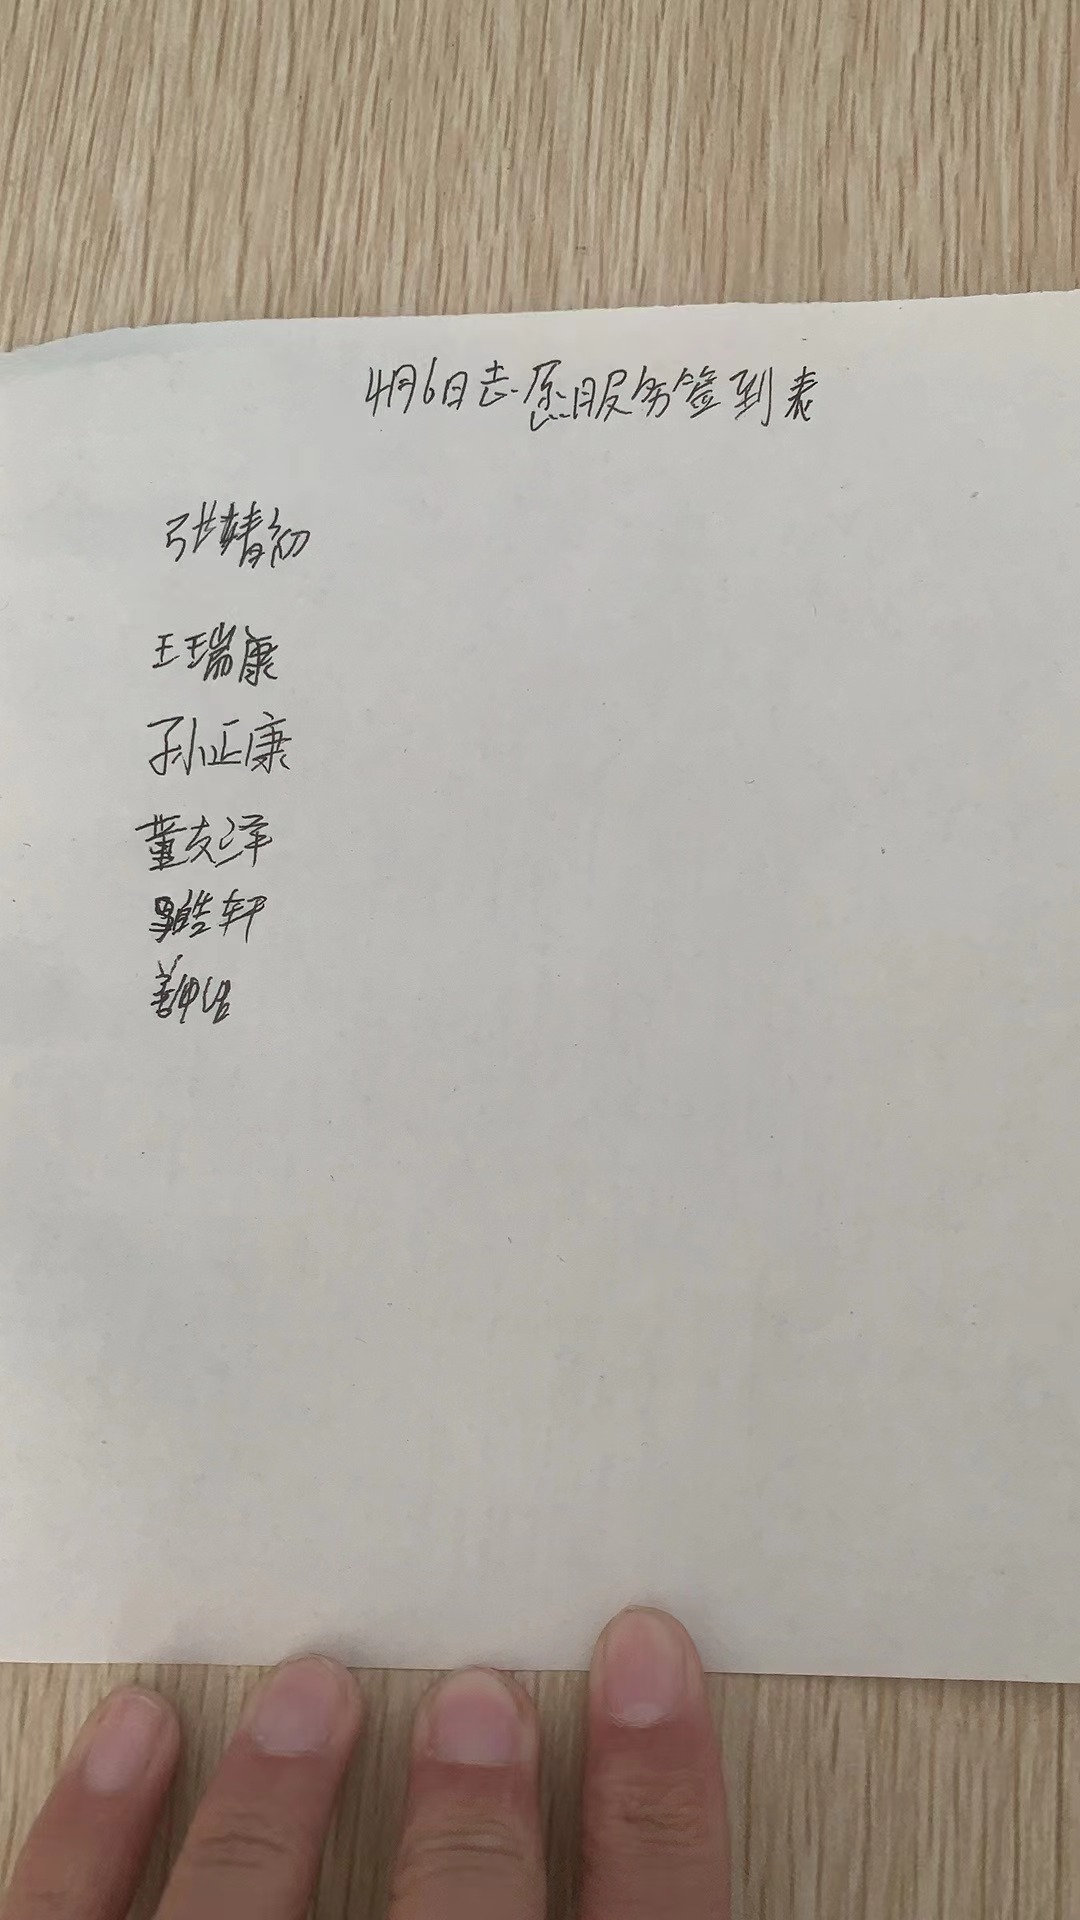 4月6日志愿服务签到表
张婧初
王瑞康
孙正康
董友洋
皓轩
姜仲治